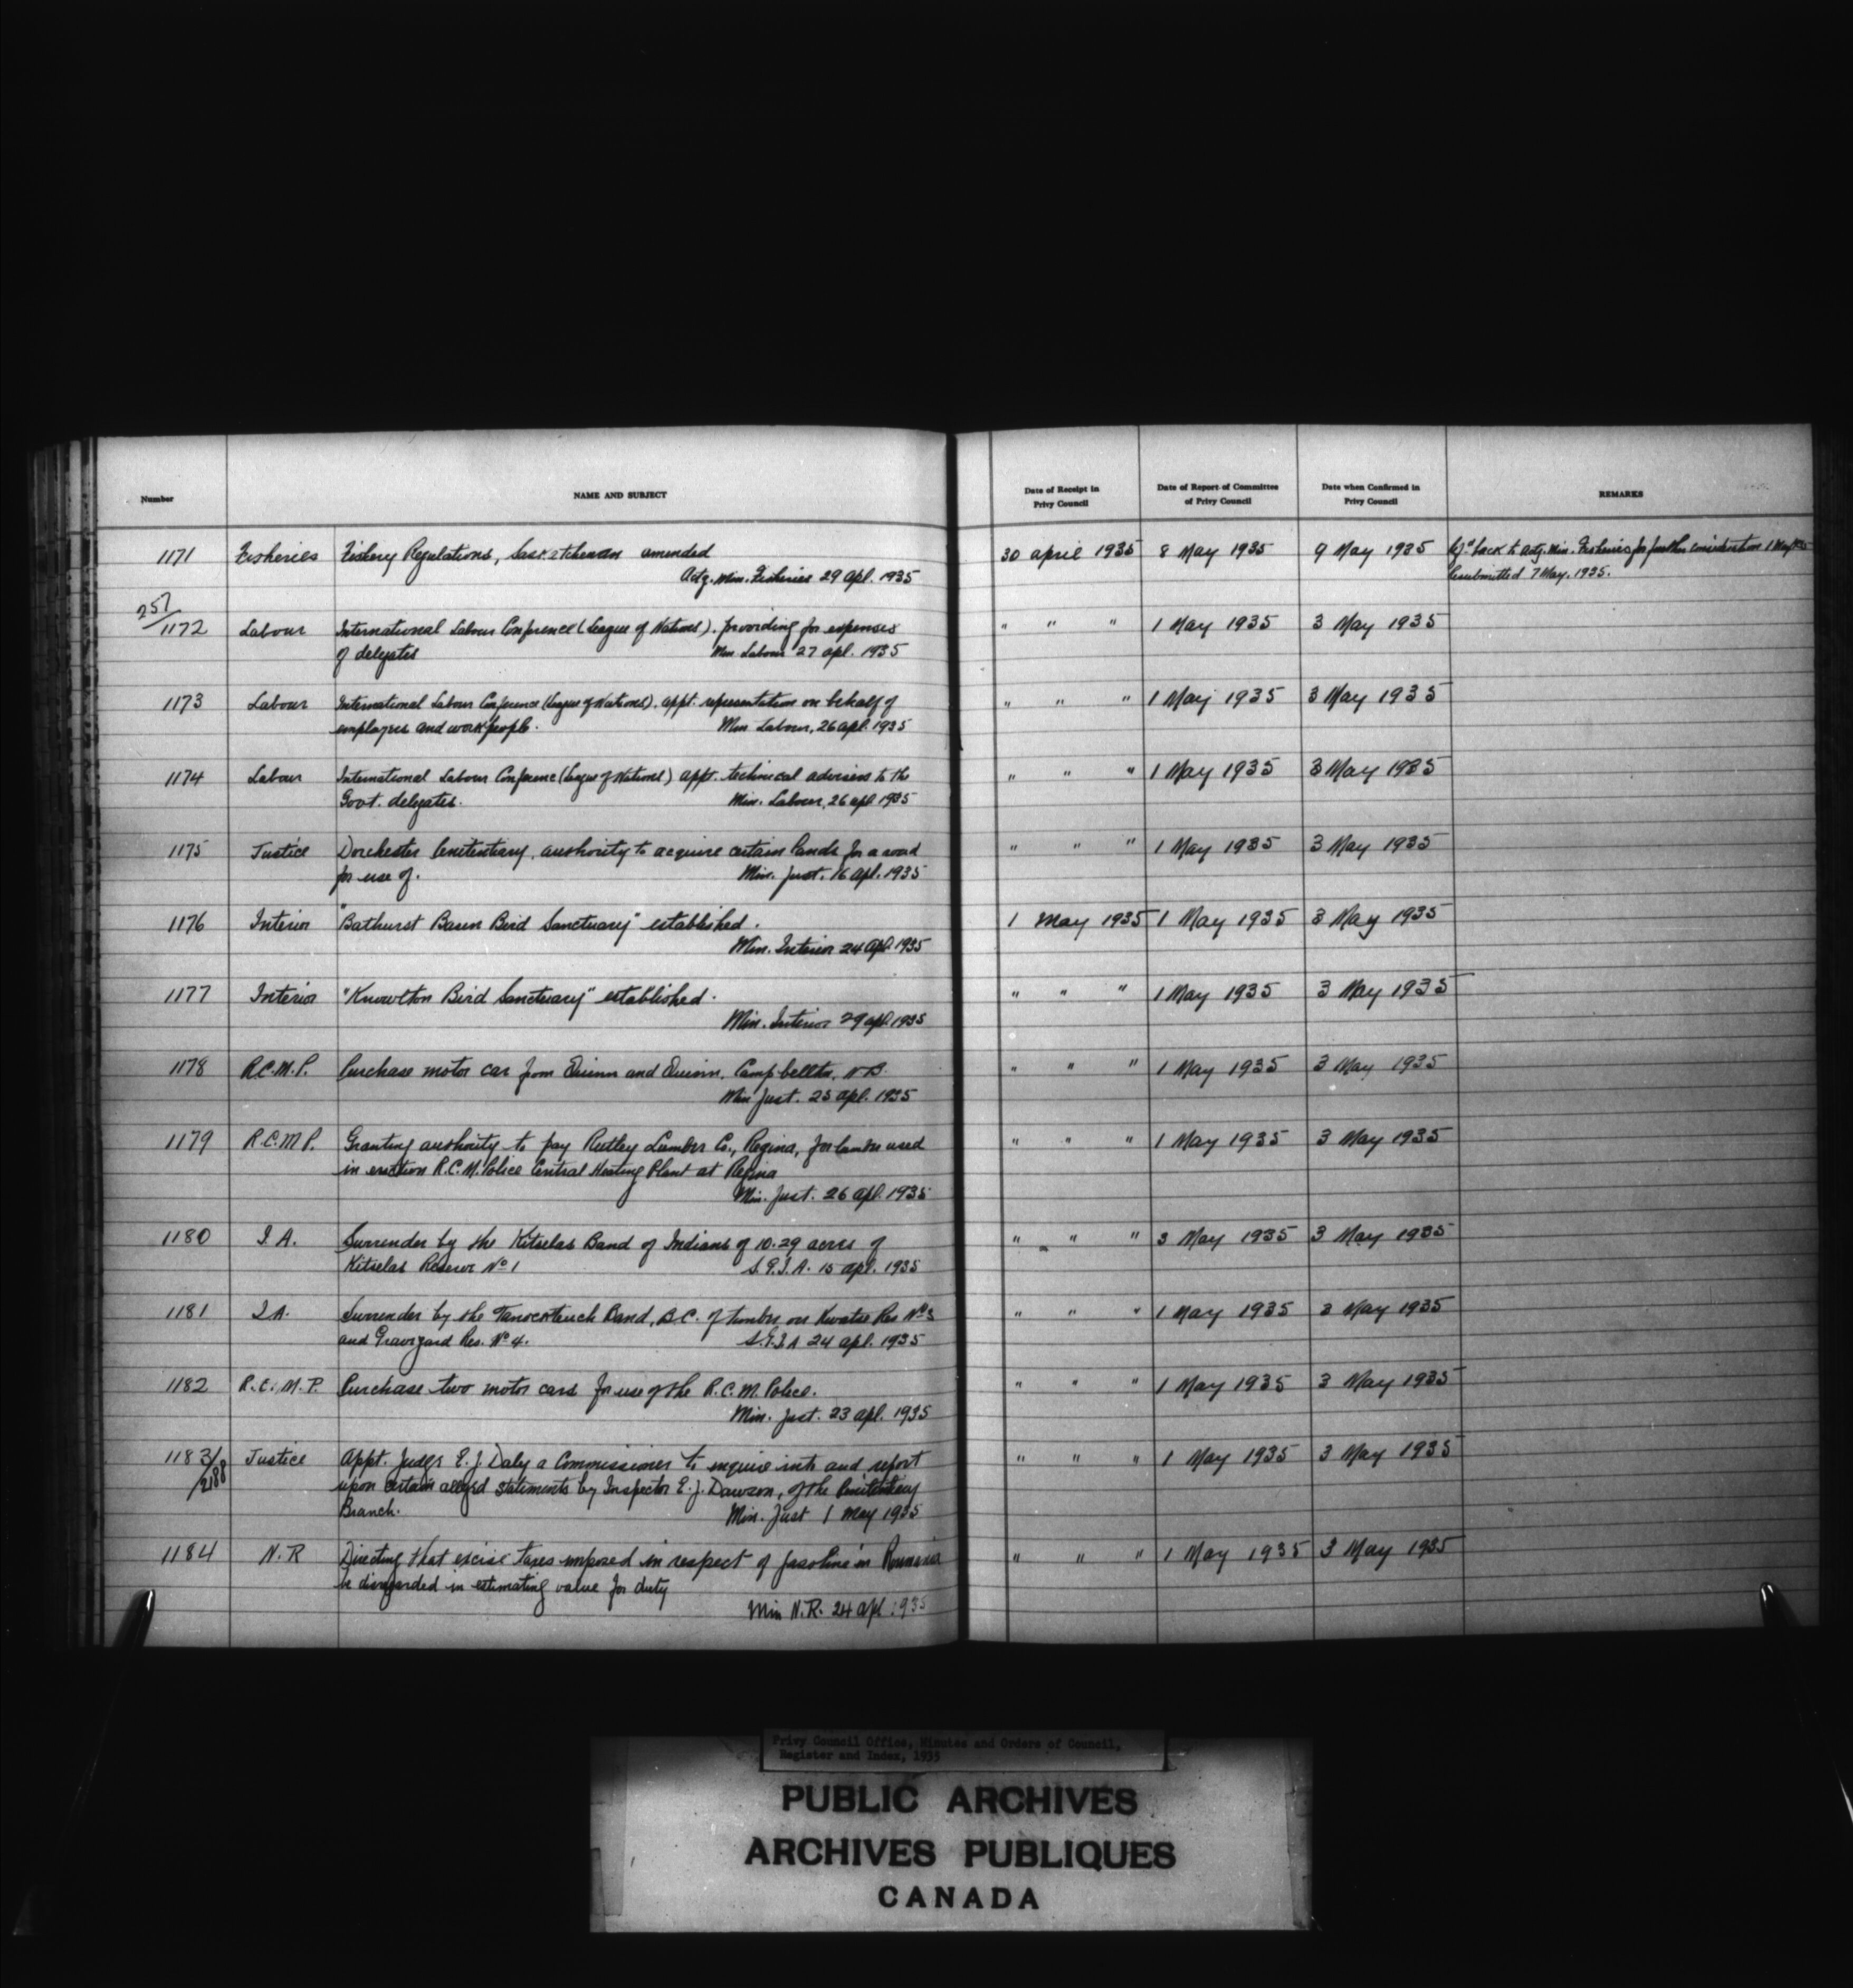 Number NAME AND SUBJECT Date of Receipt in Privy Council Date of Report of Committee of Privy Council Date when Confirmed in Privy Council REMARKS
1171 Fisheries Fishery Regulations, Saskatchewan amended 30 April 1935 8 May 1935 9 May 1935 back to Actg. Min. Fisheries for further consideration 1 May 1935
Actg. Min. Fisheries 29 Apl. 1935 Resubmitted 7 May. 1935.
257/1172 Labour International Labour Conference (League of Nations). providing for expenses " " " 1 May 1935 3 May 1935
of delegates Min Labour 27 Apl. 1935
1173 Labour International Labour Conference (League of Nations). appt. representation on behalf of " " " 1 May 1935 3 May 1935
employers and workpeople. Min Labour, 26 Apl. 1935
1174 Labour International Labour Conference (League of Nations) appt. technical advisers to the " " " 1 May 1935 3 May 1935
Govt. delegates. Min. Labour, 26 Apl 1935
1175 Justice Dorchester Penitentiary, authority to acquire certain lands for a road " " " 1 May 1935 3 May 1935
for use of. Min. Just. 16 Apl. 1935
1176 Interior "Bathurst Basin Bird Sanctuary" established. 1 May 1935 1 May 1935 3 May 1935
Min. Interior 24 Apl. 1935
1177 Interior "Knowlton Bird Sanctuary" established. " " " 1 May 1935 3 May 1935
Min. Interior 29 Apl. 1935
1178 R.C.M.P. Purchase motor car from Quinn and Quinn, Campbellton, N.B. " " " 1 May 1935 3 May 1935
Min Just. 23 Apl. 1935
1179 R.C.M.P. Granting authority to pay Lumber Co., Regina, for lumber used " " " 1 May 1935 3 May 1935
in erection R.C.M. Police Central Heating Plant at Regina
Min. Just. 26 Apl. 1935
1180 I.A. Surrender by the Kitselas Band of Indians of 10.29 acres of " " " 3 May 1935 3 May 1935
Kitselas Reserve No 1 S.G.I.A. 15 Apl. 1935
1181 I.A. Surrender by the Band, B.C. of timber on Res No 3 " " " 1 May 1935 3 May 1935
and Graveyard Res. No 4. S.G.I.A 24 Apl. 1935
1182 R.C.M.P. Purchase two motor cars for use of the R.C.M. Police. " " " 1 May 1935 3 May 1935
Min. Just. 23 Apl. 1935
1183/2188 Justice Appt. Judge E.J. Daly a Commissioner to enquire into and report " " " 1 May 1935 3 May 1935
upon certain alleged statements by Inspector E.J. Dawson, of the Penitentiary
Branch. Min. Just 1 May 1935
1184 N.R Directing that excise taxes imposed in respect of gasoline in Roumania " " " 1 May 1935 3 May 1935
be disregarded in estimating value for duty
Min N.R. 24 Apl 1935
Privy Council Office, Minutes and Orders of Council,
Register and Index, 1935
PUBLIC ARCHIVES
ARCHIVES PUBLIQUES
CANADA